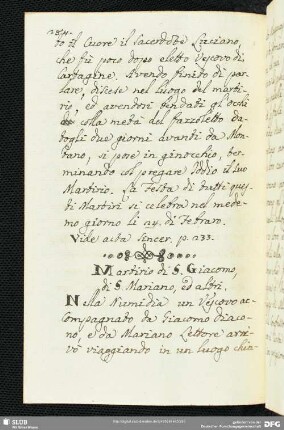 184.
to il Cuore il Sacerdote Luciano,
che fù poco dopo eletto Vescovo di
Cartagine. Avendo finito di par-
lare, discese nel luogo del marti-
rio, ed avendosi bendati gl'occhi
colla metà del fazzoletto da-
togli due giorni avanti da Mon-
tano, si pose in ginocchio, ter-
minando col pregare Iddio il suo
Martirio. La Festa di tutti ques-
ti Martiri si celebra nel mede-
mo giorno li 24. di Febraro.
Vide acta Sincer. p. 233.
Martirio di S. Giacomo,
di S. Mariano, ed altri.
Nella Numidia un Vescovo ac-
compagnato da Giacomo Diaco-
no, e da Mariano Lettore arri-
vò viaggiando in un luogo chia-
SLUB
Wir führen Wissen.
DFG